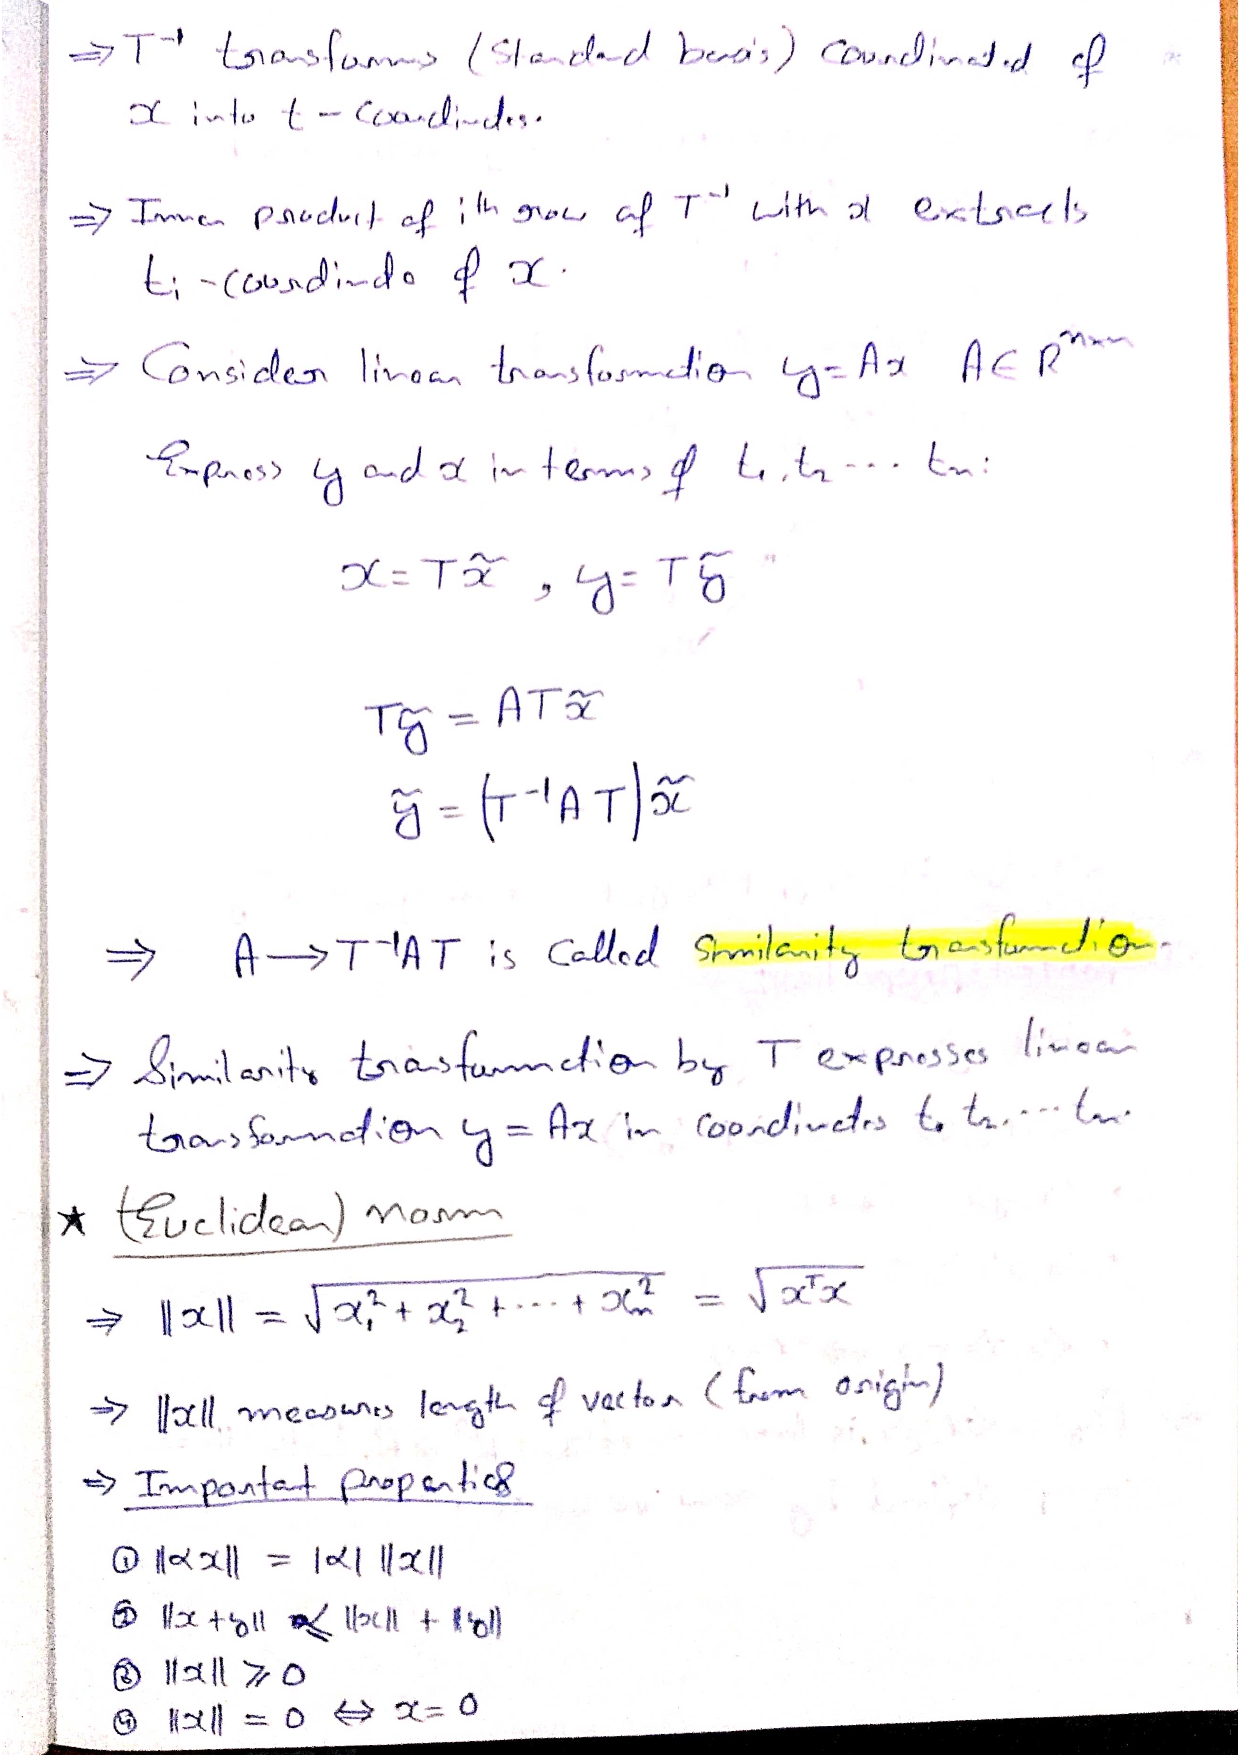 ⇒ T⁻¹ transforms (Standard basis) coordinated of
x into t - coordinates.
⇒ Inner product of ith row of T⁻¹ with x extracts
tᵢ - coordinate of x.
⇒ Consider linear transformation y = Ax A ∈ Rⁿˣⁿ
Express y and x in terms of t₁, t₂ ... tₙ:
x = Tx̃ , y = Tỹ
Tỹ = ATx̃
ỹ = (T⁻¹AT)x̃
⇒ A → T⁻¹AT is called Similarity transformation.
⇒ Similarity transformation by T expresses linear
transformation y = Ax in coordinates t₁ t₂, ... tₙ.
★ (Euclidean) norm
⇒ ||x|| = √x₁² + x₂² + ... + xₙ² = √xᵀx
⇒ ||x|| measures length of vector (from origin)
⇒ Important properties
① ||αx|| = |α| ||x||
② ||x + y|| ≤ ||x|| + ||y||
③ ||x|| ⩾ 0
④ ||x|| = 0 ⇔ x = 0